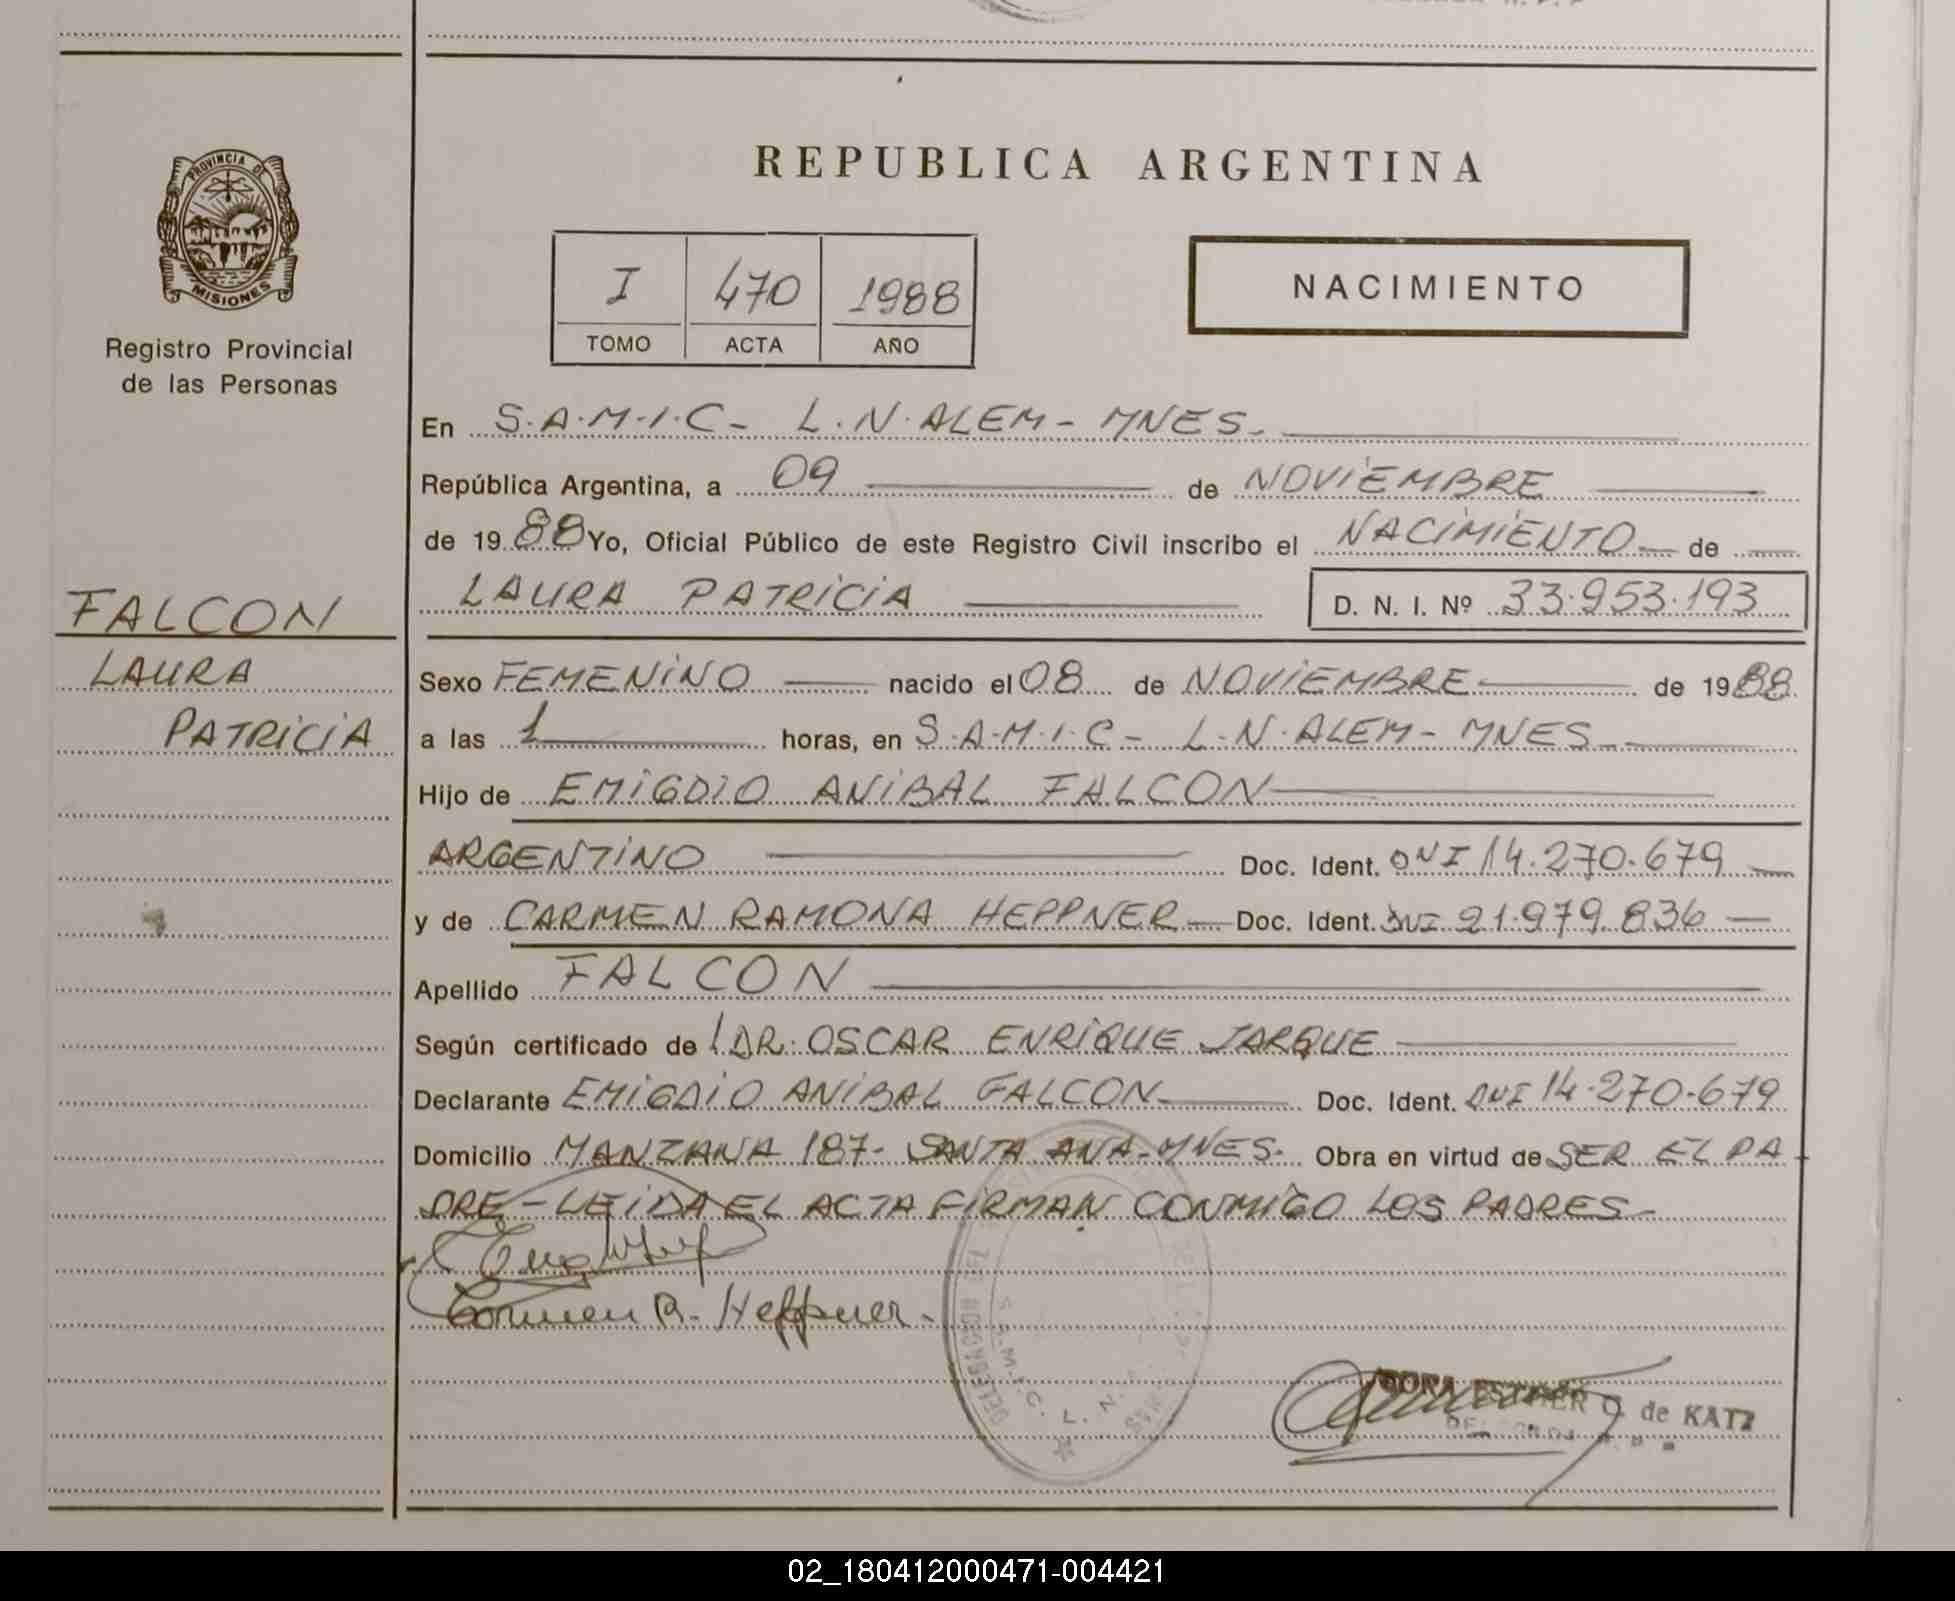 PROVINCIA DE
MISIONES
Registro Provincial
de las Personas
FALCON
LAURA
PATRICIA
REPUBLICA ARGENTINA
I 470 1988
TOMO ACTA AÑO
NACIMIENTO
En S.A.M.I.C- L.N.ALEM- MNES.
República Argentina, a 09 de NOVIEMBRE
de 1988 Yo, Oficial Público de este Registro Civil inscribo el NACIMIENTO de
LAURA PATRICIA D. N. I. Nº 33.953.193
Sexo FEMENINO nacido el 08 de NOVIEMBRE de 1988
a las 1 horas, en S.A.M.I.C- L.N.ALEM- MNES
Hijo de EMIGDIO ANIBAL FALCON
ARGENTINO Doc. Ident. DNI 14.270.679
y de CARMEN RAMONA HEPPNER Doc. Ident. DNI 21.979.836
Apellido FALCON
Según certificado de l DR. OSCAR ENRIQUE JARQUE
Declarante EMIGDIO ANIBAL FALCON Doc. Ident. DNI 14.270.679
Domicilio MANZANA 187- SANTA ANA-MNES. Obra en virtud de SER EL PA
DRE-LEIDA EL ACTA FIRMAN CONMIGO LOS PADRES-
Carmen R. Heppner.
DELEGACION DEL
S.A.M.I.C. L. N.
DORA ESTHER O. de KATZ
02_180412000471-004421